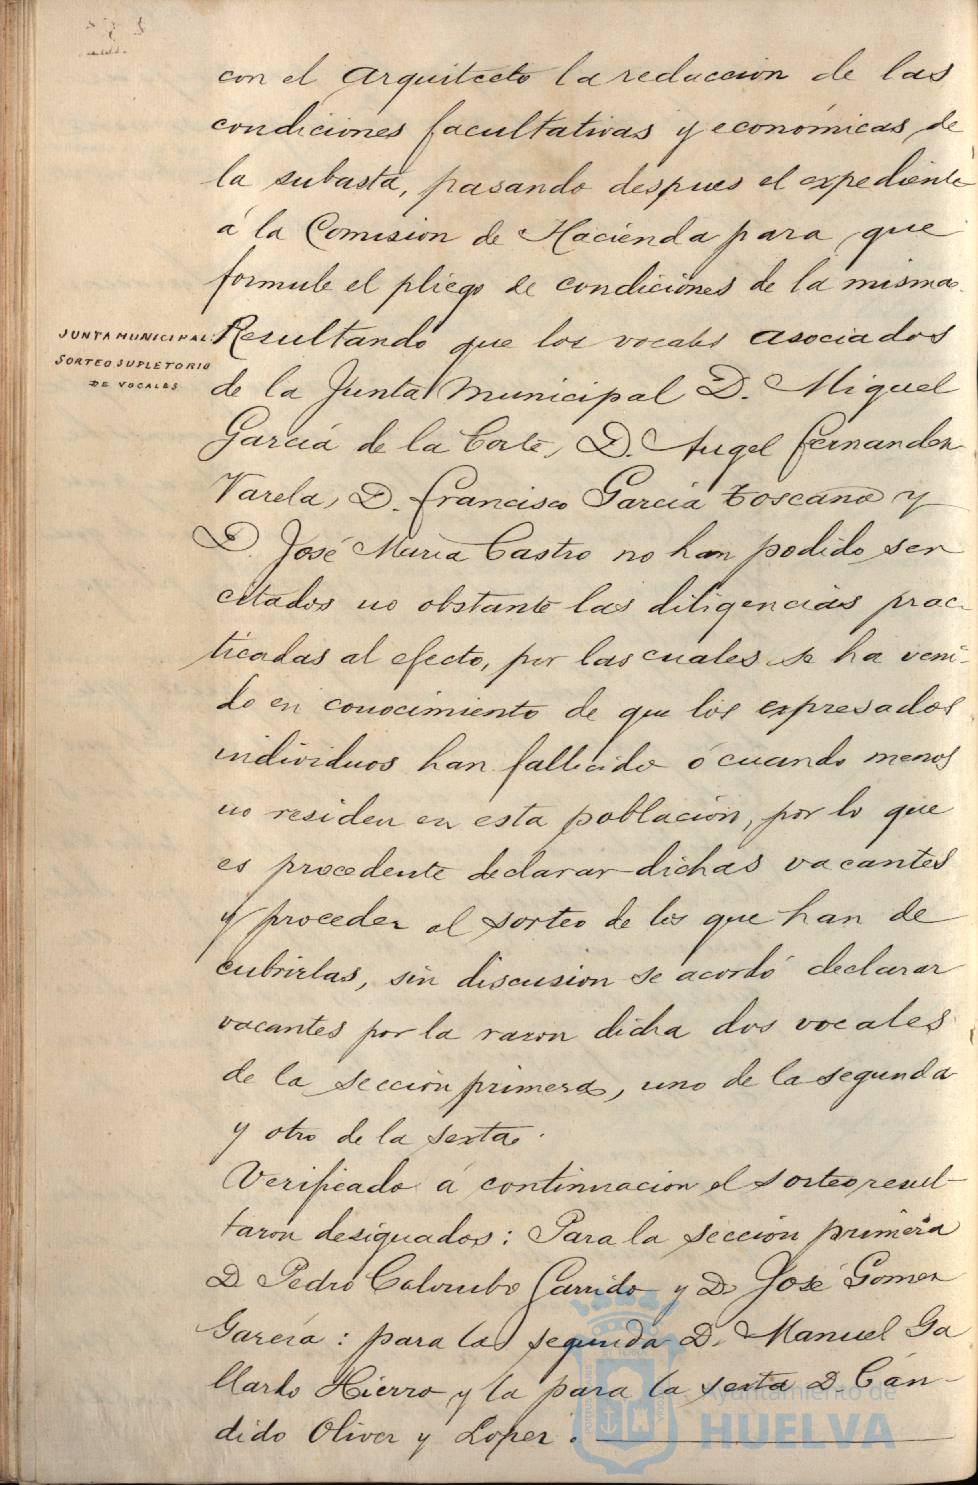 con el arquitecto la redaccion de las
condiciones facultativas y económicas de
la subasta, pasando despues el expediente
á la Comision de Hacienda para que
formule el pliego de condiciones de la misma.
JUNTA MUNICIPAL:
SORTEO SUPLETORIO
DE VOCALES
Resultando que los vocales asociados
de la Junta Municipal D. Miguel
García de la Corte, D. Angel Fernandez
Varela, D. Francisco García Toscano y
D. José María Castro no han podido ser
citados no obstante las diligencias prac-
ticadas al efecto, por las cuales se ha veni-
do en conocimiento de que los expresados
individuos han fallecido ó cuando menos
no residen en esta población, por lo que
es procedente declarar dichas vacantes
y proceder al sorteo de los que han de
cubrirlas, sin discusion se acordó declarar
vacantes por la razon dicha dos vocales
de la sección primera, uno de la segunda
y otro de la sexta.
Verificado á continuacion el sorteo resul-
taron designados: Para la sección primera
D Pedro Colombo Garrido y D. José Gomez
García: para la segunda D. Manuel Ga
llardo Hierro y la para la sexta D. Cán-
dido Oliver y Lopez.
Ayuntamiento de
HUELVA